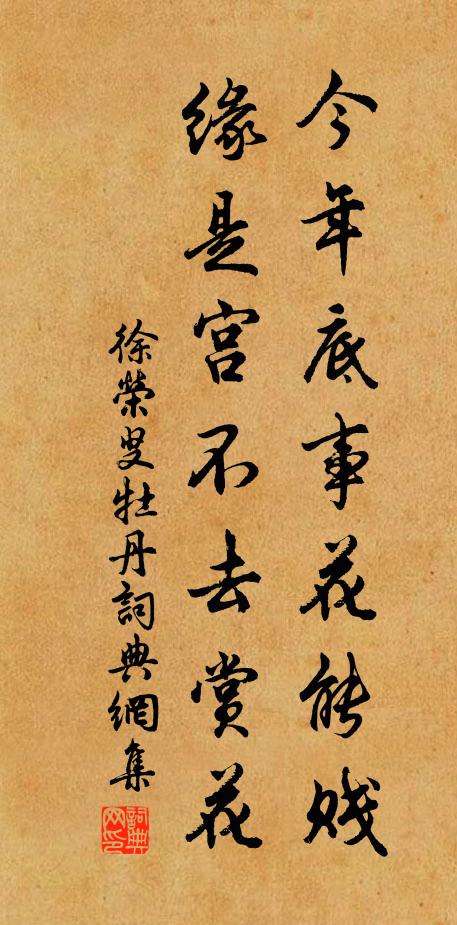 今年底事花能贱
缘是宫不去赏花
徐荣叟牡丹詞典網集
詞典网印